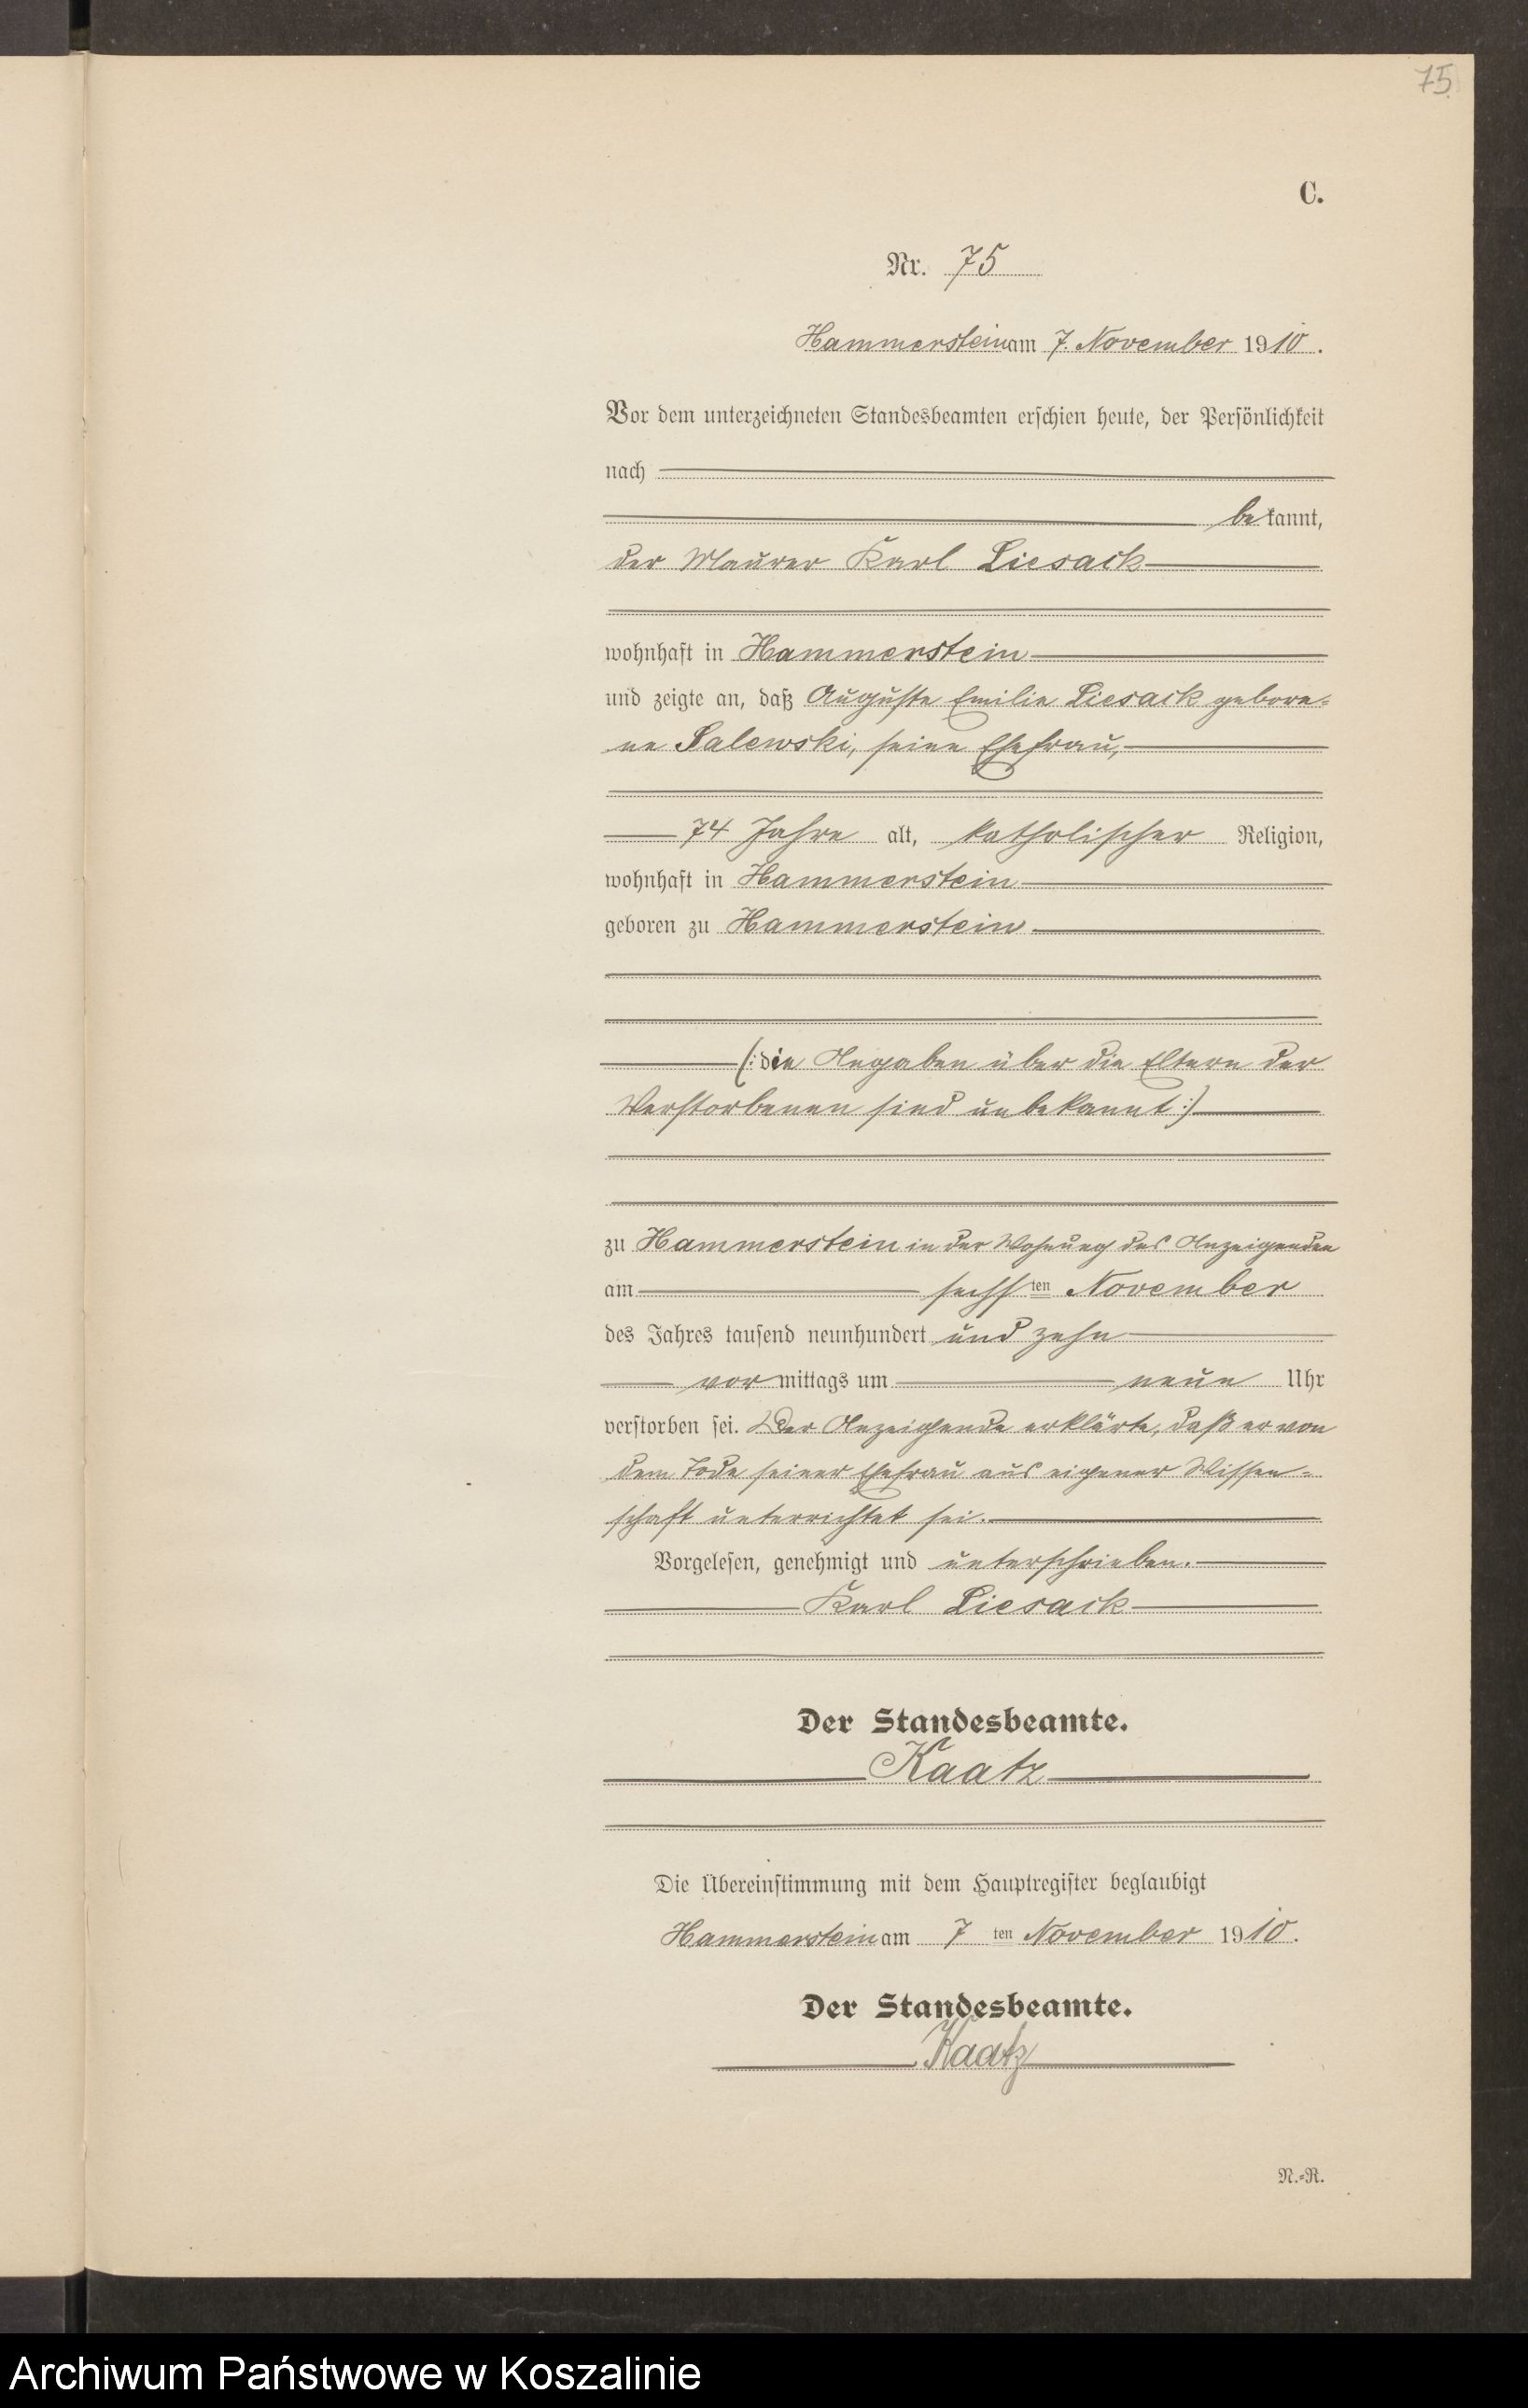 75.
C.
Nr. 75
Hammerstein am 7. November 1910.
Vor dem unterzeichneten Standesbeamten erschien heute, der Persönlichkeit
nach
bekannt,
der Maurer Karl Liesack
wohnhaft in Hammerstein
und zeigte an, daß Auguste Emilie Liesack gebore-
ne Salewski, seine Ehefrau,
74 Jahre alt, katholischer Religion,
wohnhaft in Hammerstein
geboren zu Hammerstein
(: die Angaben über die Eltern der
Verstorbenen sind unbekannt :)
zu Hammerstein in der Wohnung des Anzeigenden
am sechsten November
des Jahres tausend neunhundert und zehn
vormittags um neun Uhr
verstorben sei. Der Anzeigende erklärte, daß er von
dem Tode seiner Ehefrau aus eigener Wissen-
schaft unterrichtet sei.
Vorgelesen, genehmigt und unterschrieben.
Karl Liesack
Der Standesbeamte.
Kaatz
Die Übereinstimmung mit dem Hauptregister beglaubigt
Hammerstein am 7ten November 1910.
Der Standesbeamte.
Kaatz
N.-R.
Archiwum Państwowe w Koszalinie